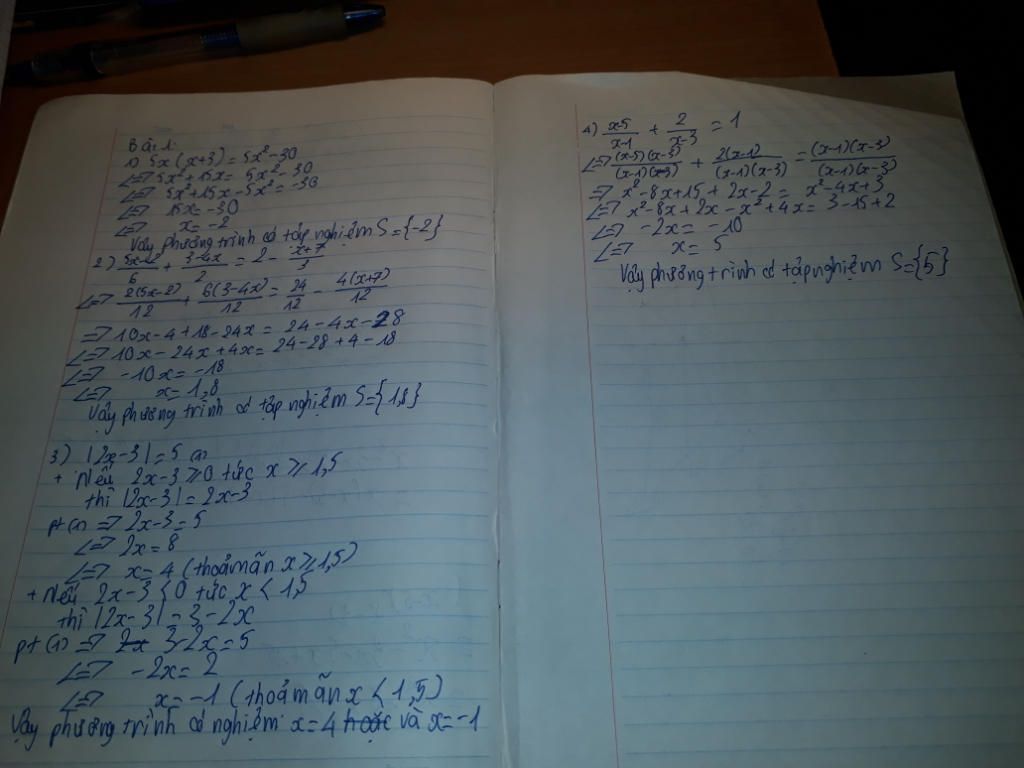 Bài 1:
1) 5x(x+3) = 5x² - 30
<=> 5x² + 15x = 5x² - 30
<=> 5x² + 15x - 5x² = -30
<=> 15x = -30
<=> x = -2
Vậy phương trình có tập nghiệm S = {-2}
2) (5x-2)/6 + (3-4x)/2 = 2 - (x+7)/3
<=> 2(5x-2)/12 + 6(3-4x)/12 = 24/12 - 4(x+7)/12
=> 10x - 4 + 18 - 24x = 24 - 4x - 28
<=> 10x - 24x + 4x = 24 - 28 + 4 - 18
<=> -10x = -18
<=> x = 1,8
Vậy phương trình có tập nghiệm S = {1,8}
3) |2x-3| = 5 (1)
+ Nếu 2x-3 ≥ 0 tức x ≥ 1,5
thì |2x-3| = 2x-3
pt(1) => 2x-3 = 5
<=> 2x = 8
<=> x = 4 (thoả mãn x ≥ 1,5)
+ Nếu 2x-3 < 0 tức x < 1,5
thì |2x-3| = 3-2x
pt(1) => 3-2x = 5
<=> -2x = 2
<=> x = -1 (thoả mãn x < 1,5)
Vậy phương trình có nghiệm: x = 4 và x = -1
4) (x-5)/(x-1) + 2/(x-3) = 1
<=> (x-5)(x-3)/(x-1)(x-3) + 2(x-1)/(x-1)(x-3) = (x-1)(x-3)/(x-1)(x-3)
=> x² - 8x + 15 + 2x - 2 = x² - 4x + 3
<=> x² - 8x + 2x - x² + 4x = 3 - 15 + 2
<=> -2x = -10
<=> x = 5
Vậy phương trình có tập nghiệm S = {5}